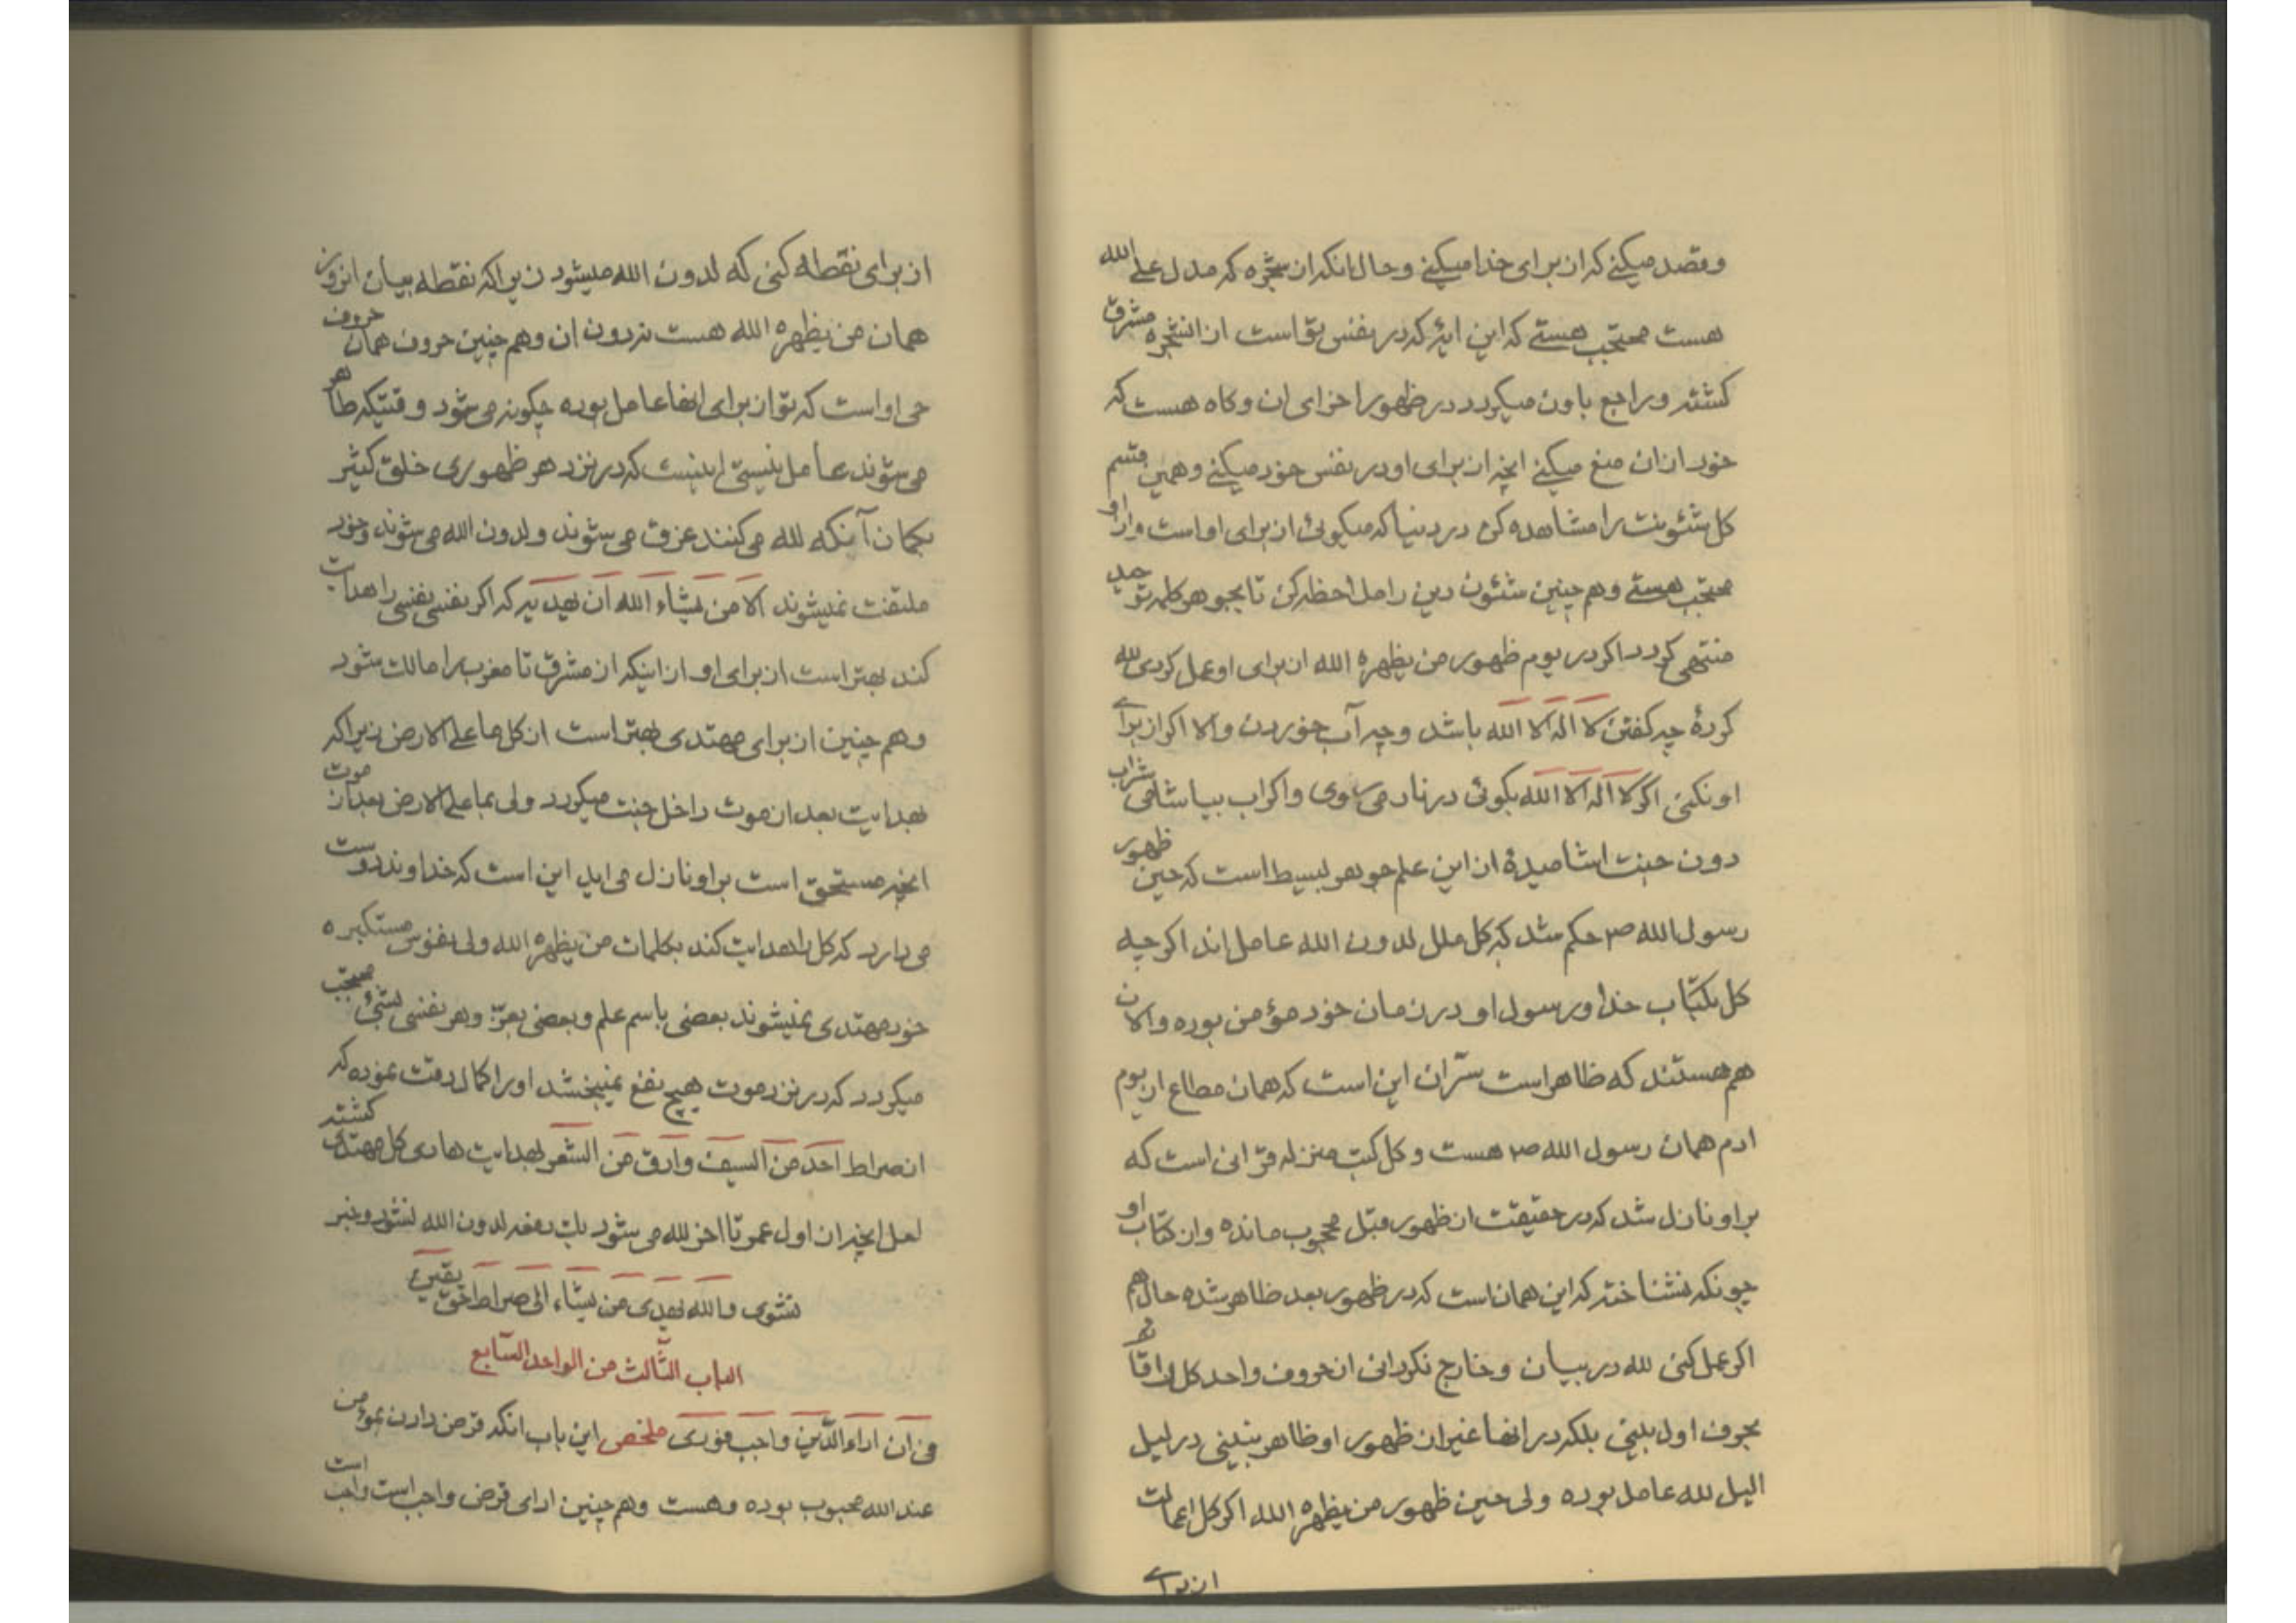 و قصد میکنے که از برای خدا میکنے و حال انکه از شجره که مدل علی الله
هست محتجب هستے که این ایهٔ که در نفس تو است از انشجره مشرق
کشته و راجع باون میکردد در ظهور اخرای ان و کاه هست که
خود از ان منع میکنے انچه از برای او در نفس خود میکنے و همین قسم
کل شئونت را مشاهده کن در دنیا که میکوئی از برای او است و از او
محتجب هستے و هم چنین شئون دین را ملاحظه کن تا بجوهر کلمه توحید
منتهی کردد اکر در یوم ظهور من یظهره الله از برای او عمل کردی لله
کردهٔ چه کفتن لا اله الا الله باشد و چه آب خوردن والا اکر از برای
او نکنی اکر لا اله الا الله بکوئی در نار می روی و اکر اب بیاشامی شراب
دون جنت اشامیدهٔ از این علم جوهر بسیط است که حین ظهور
رسول الله ص حکم شد که کل ملل لدون الله عامل اند اکر چه
کل بکتاب خدا و رسول او در زمان خود مؤمن بوده و الان
هم هستند که ظاهر است سرّ ان این است که همان مطاع از یوم
ادم همان رسول الله ص هست و کل کتب منزله قرانی است که
بر او نازل شد که در حقیقت از ظهور قبل محجوب مانده و از کتاب او
چونکه نشناخته که این همان است که در ظهور بعد ظاهر شده حال هم
اکر عمل کنی لله در بیان و خارج نکردانی از حروف واحد کل را قائم
بحرف اول بینی بلکه در انها غیر از ظهور او ظاهر نبینی در لیل
الیل لله عامل بوده ولی حین ظهور من یظهره الله اکر کل اعمالت
از برای
از برای نقطه کنی که لدون الله میشود زیرا که نقطه بیان انروز
همان من یظهره الله هست نه دون ان و هم چنین حروف همان حروف
حی او است که تو از برای انها عامل بوده چکونه می شود وقتیکه ظاهر
می شوند عامل نیستی اینست که در نزد هر ظهوری خلق کثیر
بکمان آنکه لله می کنند غرق می شوند و لدون الله می شوند و خود
ملتفت نمیشوند الا من یشاء الله ان یهدیه که اکر نفسی نفسی را هدایت
کند بهتر است از برای او از اینکه از مشرق تا مغرب را مالک شود
و هم چنین از برای مهتدی بهتر است از کل ما علی الارض زیرا که
بهدایت بعد از موت داخل جنت میکردد ولی بما علی الارض بعد از موت
انچه مستحق است بر او نازل می اید این است که خداوند دوست
می دارد که کل را هدایت کند بکلمات من یظهره الله ولی نفوس مستکبره
خود مهتدی نمیشوند بعضی باسم علم و بعضی بعزّ و هر نفسی بشیٔ محتجب
میکردد که در نزد موت هیچ نفع نمیبخشد او را کمال دقت نموده که
از صراط احد من السیف و ادق من الشعر بهدایت هادی کل مهتدی کشته
لعل انچه از اول عمر تا اخر لله می شود یک دفعه لدون الله نشود و خبر
نشوی و الله یهدی من یشاء الی صراط حق یقین
الباب الثالث من الواحد السابع
فی ان اداء الدّین واجب فوری ملخص این باب انکه قرض دادن بمؤمن
عند الله محبوب بوده و هست و هم چنین ادای قرض واجب است واجب است